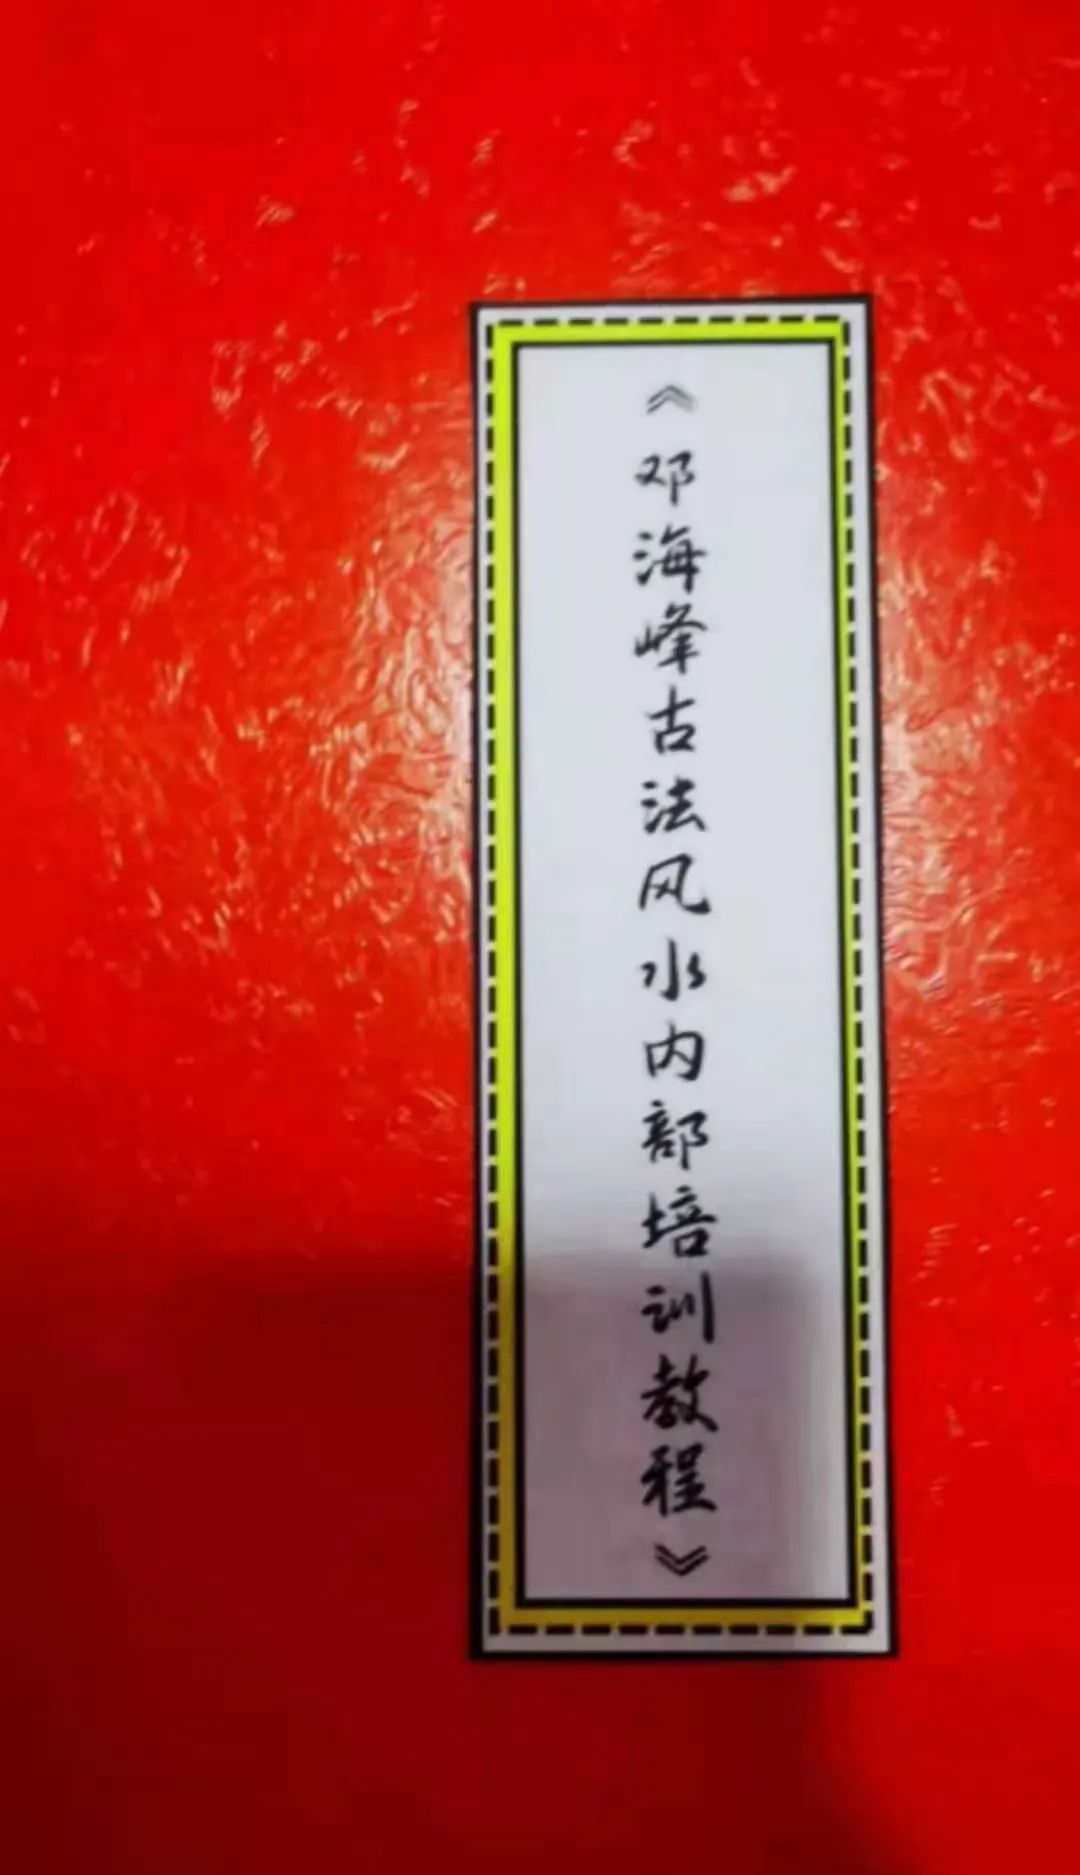 《邓海峰古法风水内部培训教程》